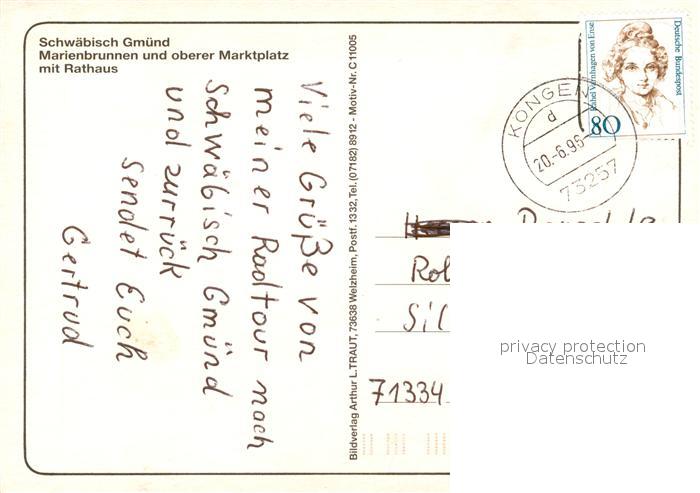 Schwäbisch Gmünd
Marienbrunnen und oberer Marktplatz
mit Rathaus
Viele Grüße von
meiner Radtour nach
Schwäbisch Gmünd
und zurrück
sendet Euch
Gertrud
Bildverlag Arthur L.TRAUT, 73638 Welzheim, Postf. 1332,Tel.(07182) 8912 - Motiv-Nr. C11005
Deutsche Bundespost
Rahel Varnhagen von Ense
80
KÖNGEN
d
20.-6.96
73257
Rol
Sil
71334
privacy protection
Datenschutz